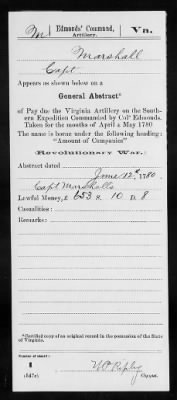 M | Edmonds' Command, Artillery. | Va.
Marshall
Capt
Appears as shown below on a
General Abstract*
of Pay due the Virginia Artillery on the South-
ern Expedition Commanded by Col° Edmonds.
Taken for the months of April & May 1780
The name is borne under the following heading:
"Amount of Companies"
Revolutionary War.
Abstract dated
June 12th, 1780.
Capt Marshalls
Lawful Money, £ 653 S. 10 D. 8
Casualties:
Remarks:
*Certified copy of an original record in the possession of the State
of Virginia.
Number of record:
1
Copyist.